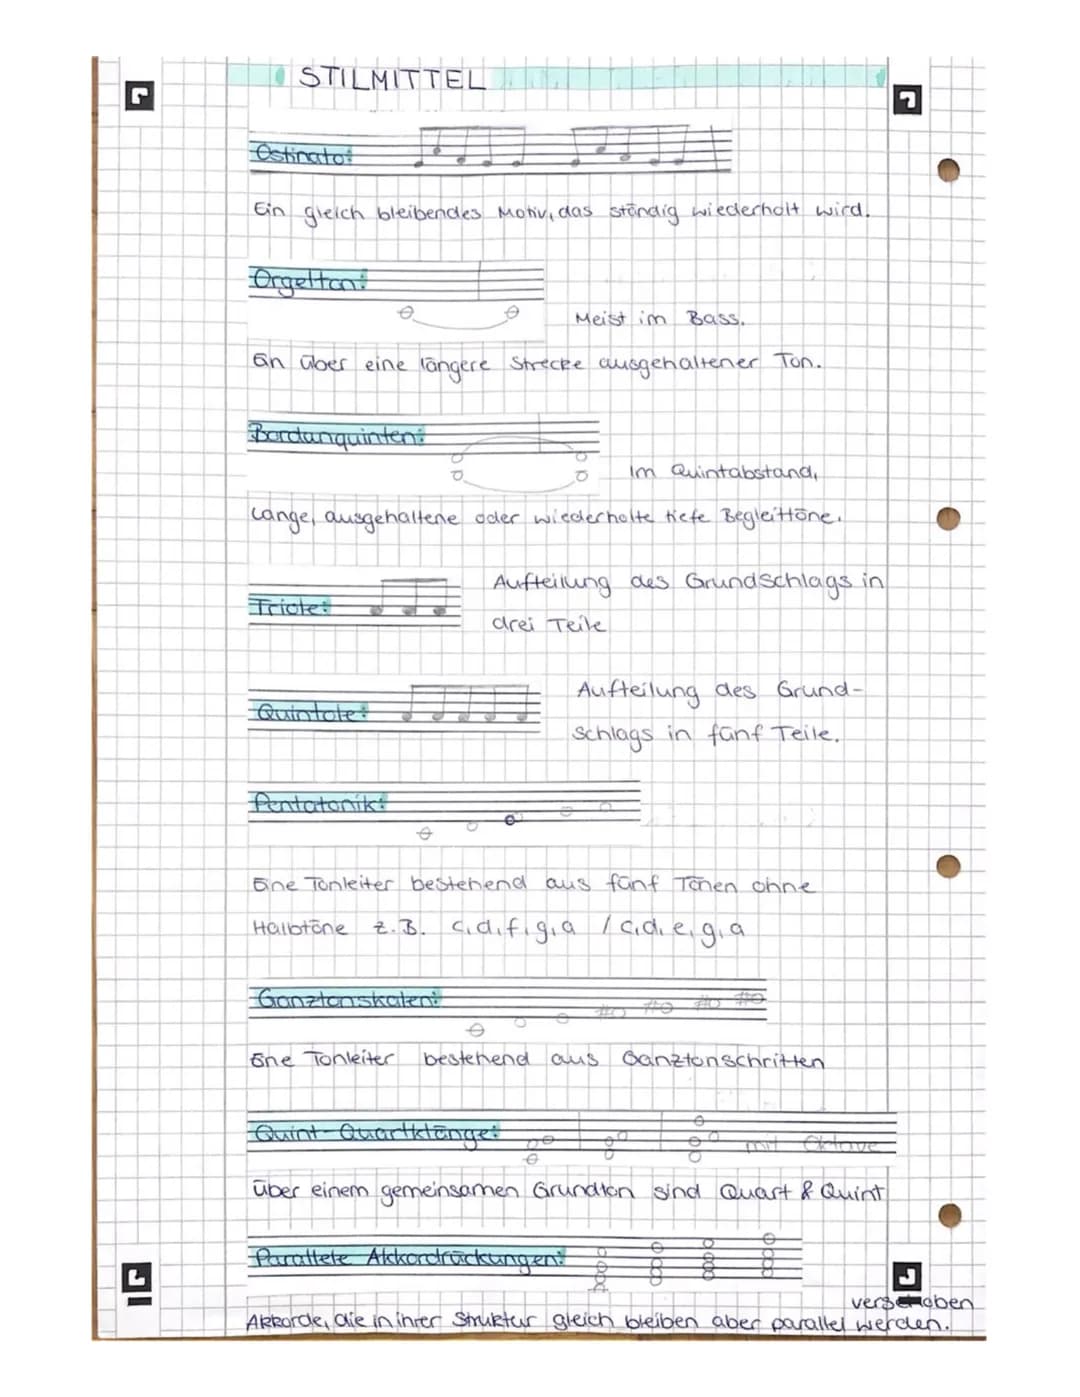 STILMITTEL
Ostinato:
Ein gleich bleibendes Motiv, das ständig wiederholt wird.
Orgelton:
Meist im Bass.
Ein über eine längere Strecke ausgehaltener Ton.
Bordunquinten:
Im Quintabstand,
Lange, ausgehaltene oder wiederholte tiefe Begleittöne.
Triole:
Aufteilung des Grundschlags in
drei Teile
Quintole:
Aufteilung des Grund-
schlags in fünf Teile.
Pentatonik:
Eine Tonleiter bestehend aus fünf Tönen ohne
Halbtöne z.B. c,d,f,g,a / c,d,e,g,a
Ganztonskalen:
Eine Tonleiter bestehend aus Ganztonschritten
Quint-Quartklänge:
mit Oktave
über einem gemeinsamen Grundton sind Quart & Quint
Parallele Akkordrückungen:
verschoben
Akkorde, die in ihrer Struktur gleich bleiben aber parallel werden.